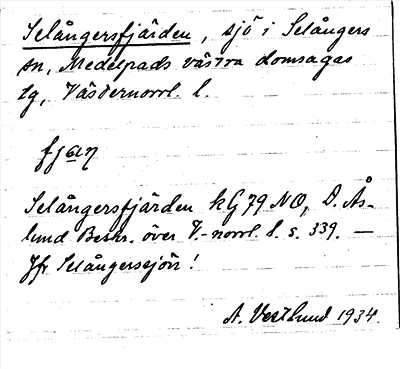 Selångersfjärden, sjö i Selångers
sn, Medelpads västra domsagas
tg, Västernorrl. l.
fjaŋ
Selångersfjärden kG79 NO, D. Ås-
lund Beskr. över V-norrl. l. s. 339. —
Jfr Selångerssjön!
A. Vestlund 1934.